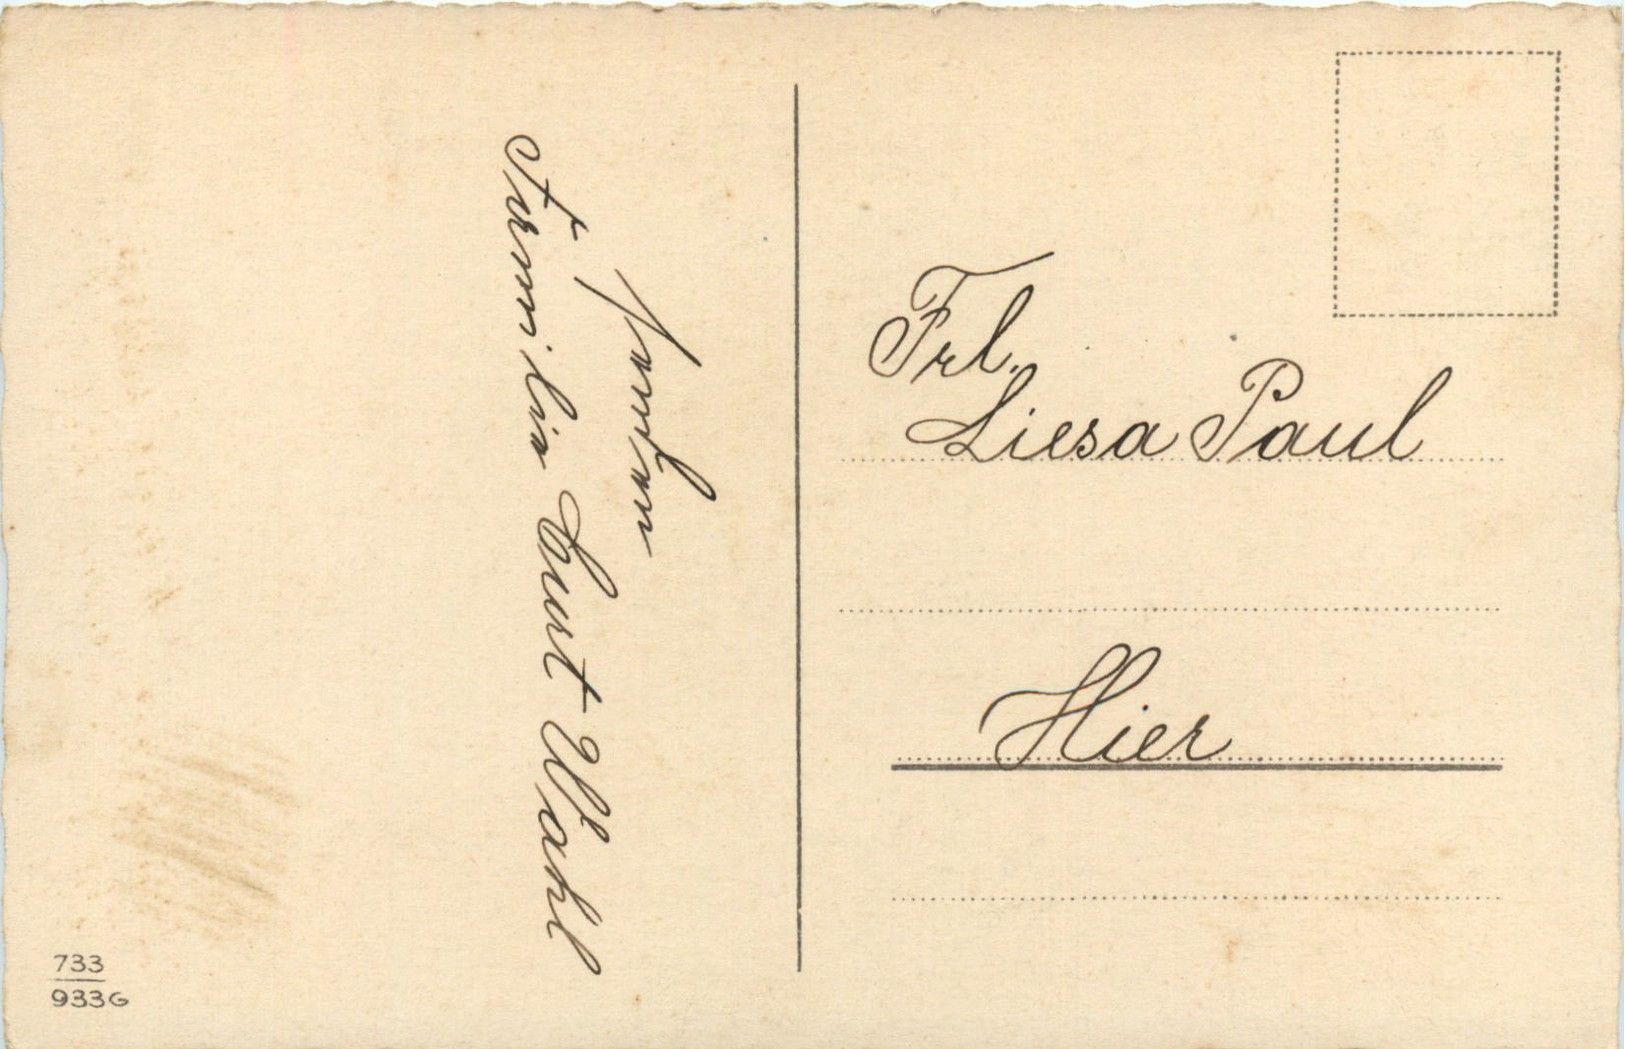 Familie Curt Wahl
Frl.
Liesa Paul
Hier
733
933G